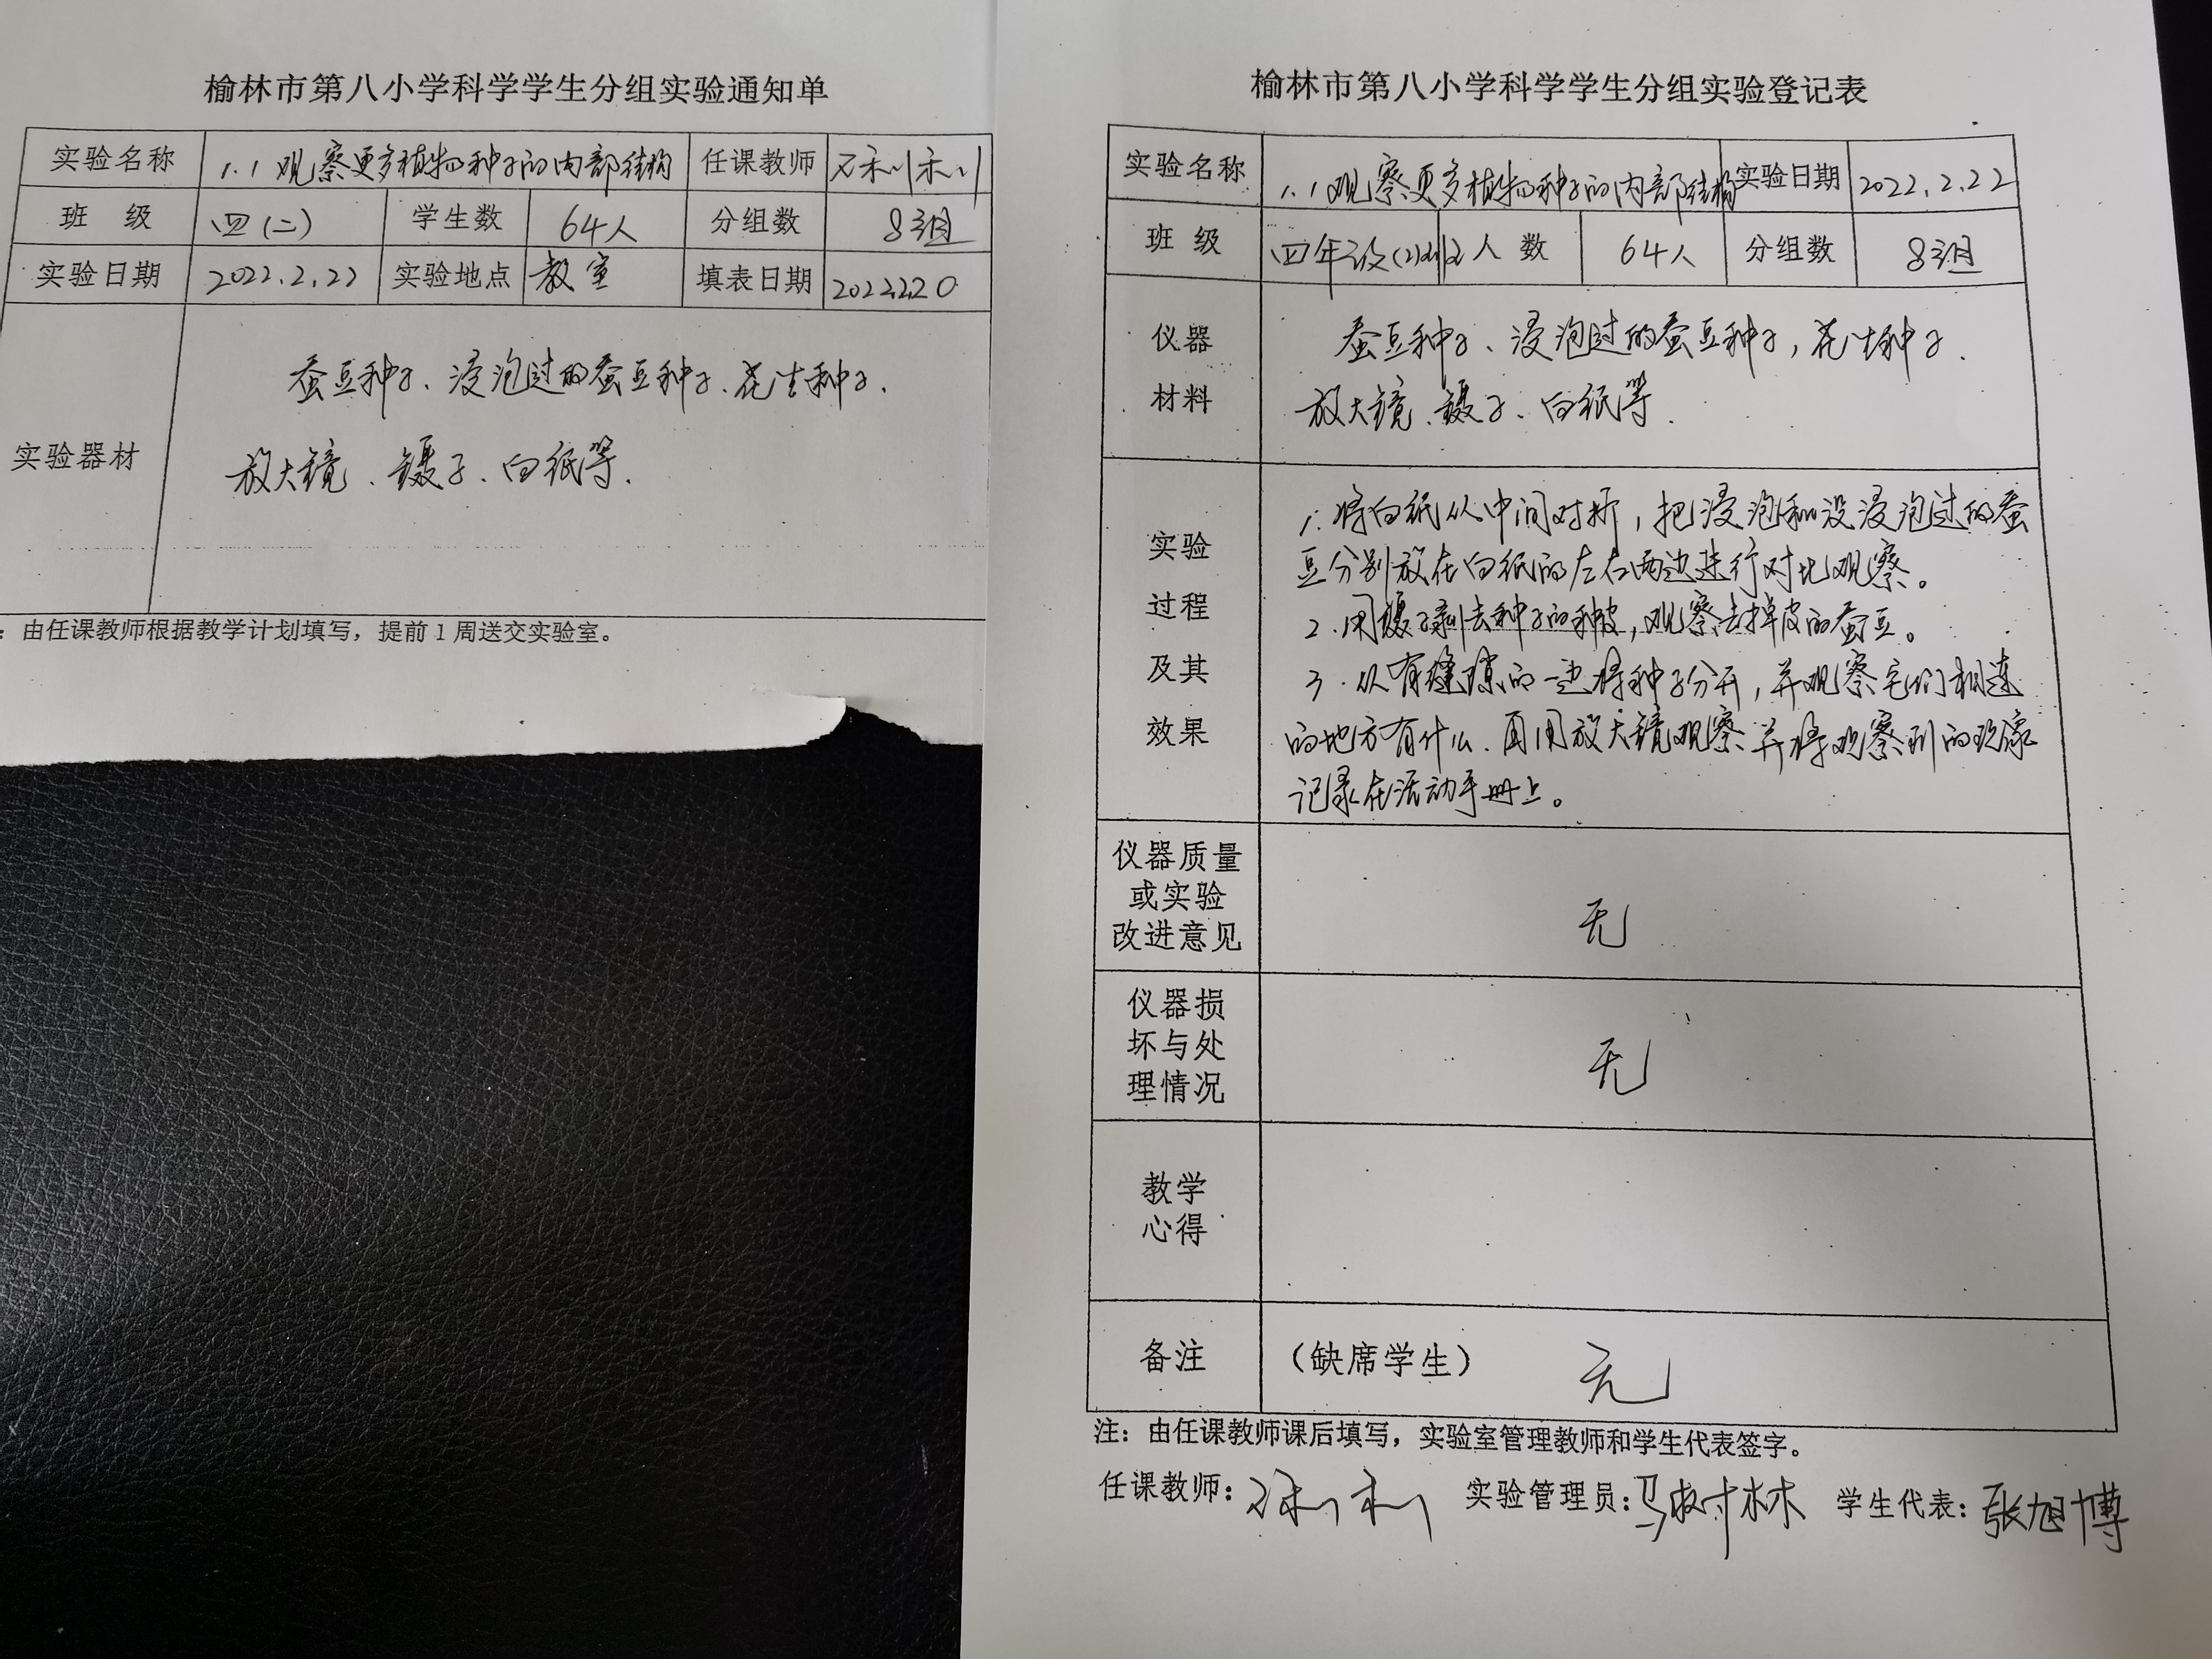 榆林市第八小学科学学生分组实验通知单
实验名称 1.1 观察更多植物种子的内部结构 任课教师
班 级 四(二) 学生数 64人 分组数 8组
实验日期 2022.2.22 实验地点 教室 填表日期 2022220
实验器材
蚕豆种子、浸泡过的蚕豆种子、花生种子、
放大镜、镊子、白纸等.
：由任课教师根据教学计划填写，提前1周送交实验室。
榆林市第八小学科学学生分组实验登记表
实验名称 1.1 观察更多植物种子的内部结构 实验日期 2022.2.22
班 级 四年级(2)班 人 数 64人 分组数 8组
仪器
材料
蚕豆种子、浸泡过的蚕豆种子，花生种子、
放大镜、镊子、白纸等.
实验
过程
及其
效果
1.将白纸从中间对折，把浸泡和没浸泡过的蚕
豆分别放在白纸的左右两边进行对比观察。
2.用镊子剥去种子的种皮，观察去掉皮的蚕豆。
3.从有缝隙的一边将种子分开，并观察它们相连
的地方有什么、再用放大镜观察并将观察到的现象
记录在活动手册上。
仪器质量
或实验
改进意见
无
仪器损
坏与处
理情况
无
教学
心得
备注 （缺席学生） 无
注：由任课教师课后填写，实验室管理教师和学生代表签字。
任课教师： 实验管理员：马树林 学生代表：张旭博